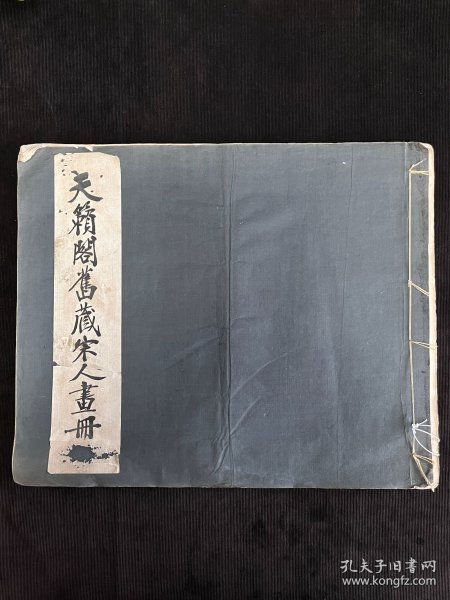 天籟閣舊藏宋人畫冊
孔夫子旧书网
www.kongfz.com